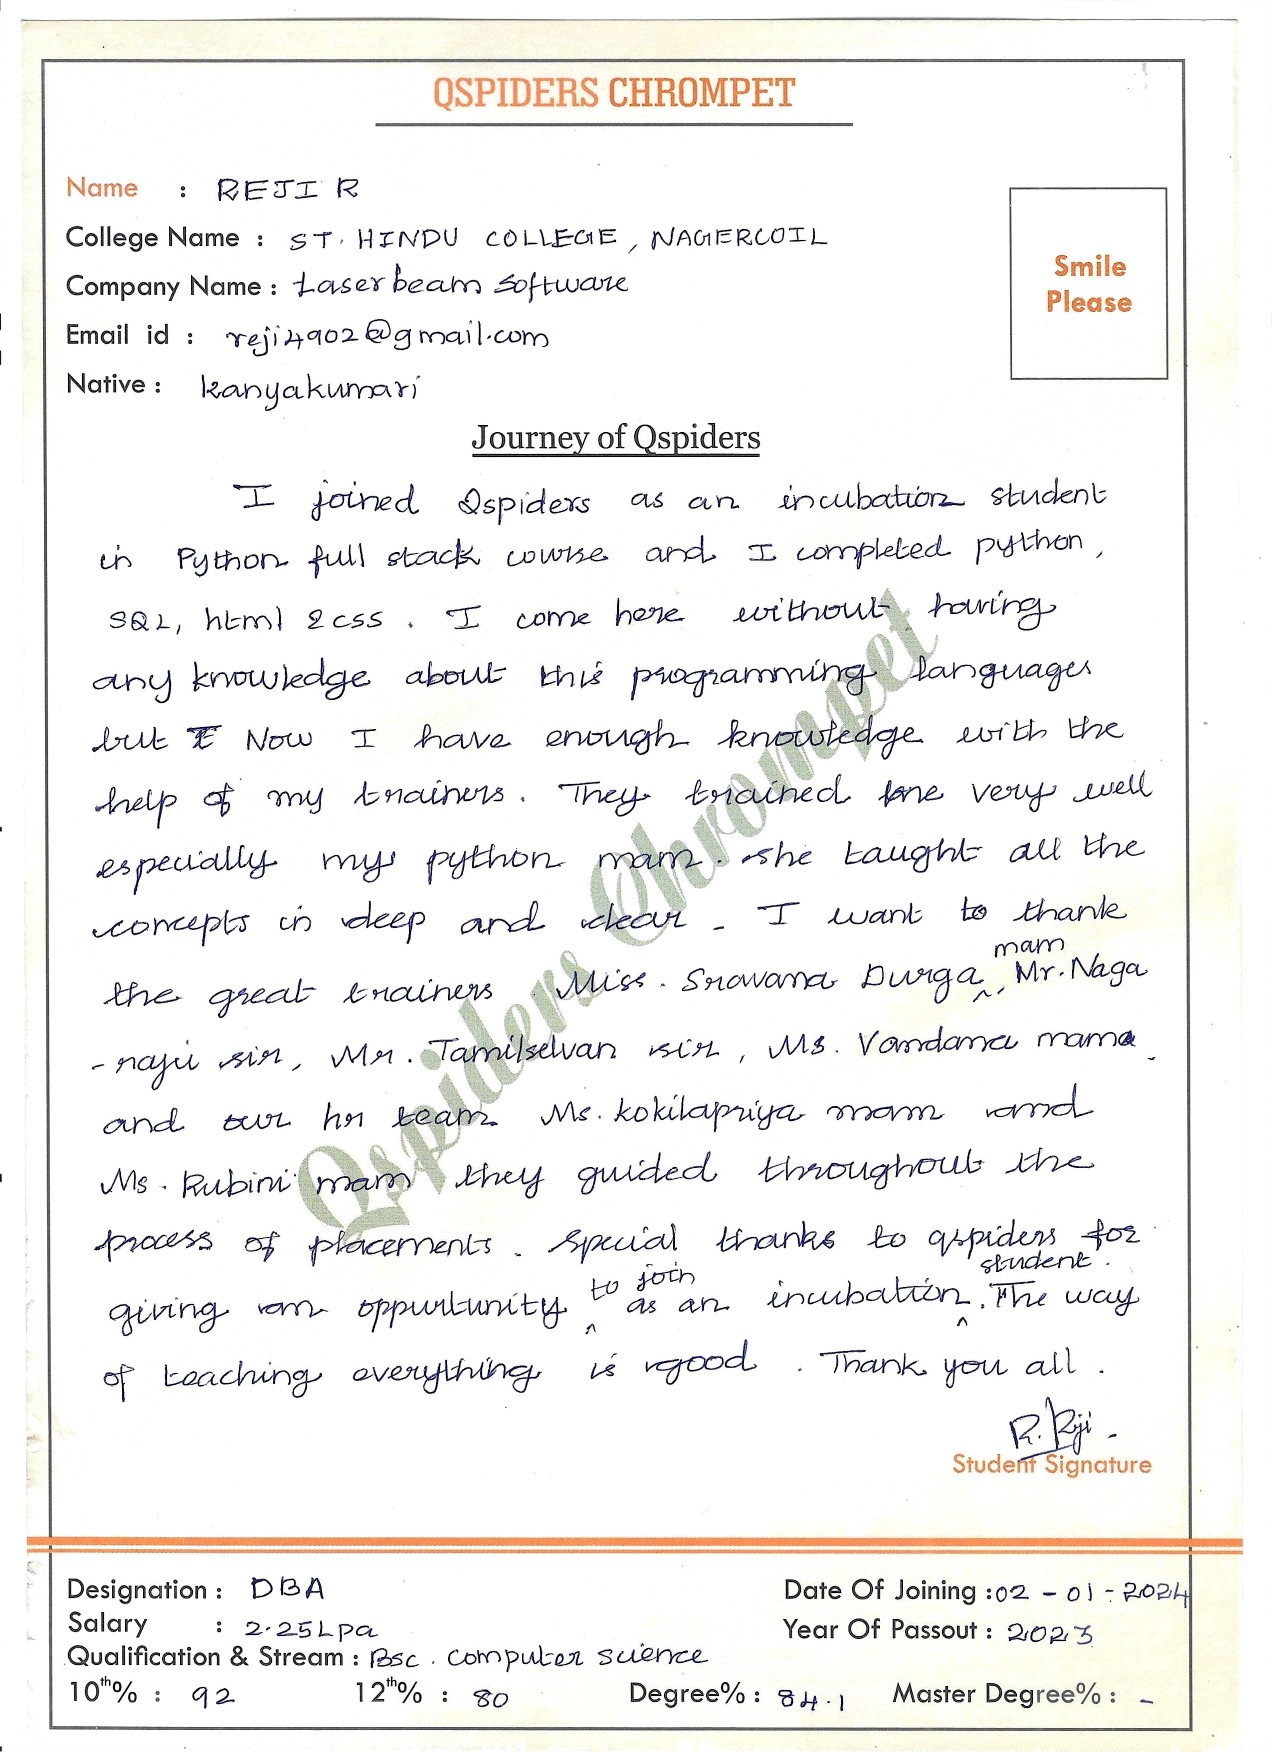 QSPIDERS CHROMPET
Name : REJI R
College Name : S.T. HINDU COLLEGE, NAGERCOIL
Company Name : Laserbeam Software
Email id : reji4902@gmail.com
Native : Kanyakumari
Smile
Please
Journey of Qspiders
I joined Qspiders as an incubation student
in Python full stack course and I completed python,
SQL, html & css. I come here without having
any knowledge about this programming languages
but Now I have enough knowledge with the
help of my trainers. They trained me very well
especially my python mam. she taught all the
concepts in deep and clear. I want to thank
the great trainers. Miss. Sravana Durga mam, Mr. Naga
-raju sir, Mr. Tamilselvan sir, Ms. Vandana mam
and our hr team Ms. Kokilapriya mam and
Ms. Rubini mam they guided throughout the
process of placements. Special thanks to qspiders for
giving an oppurtunity to join as an incubation student. The way
of teaching everything is good. Thank you all.
R. Reji
Student Signature
Qspiders Chrompet
Designation : DBA Date Of Joining : 02-01-2024
Salary : 2.25Lpa Year Of Passout : 2023
Qualification & Stream : Bsc. Computer science
10th% : 92 12th% : 80 Degree% : 84.1 Master Degree% : -